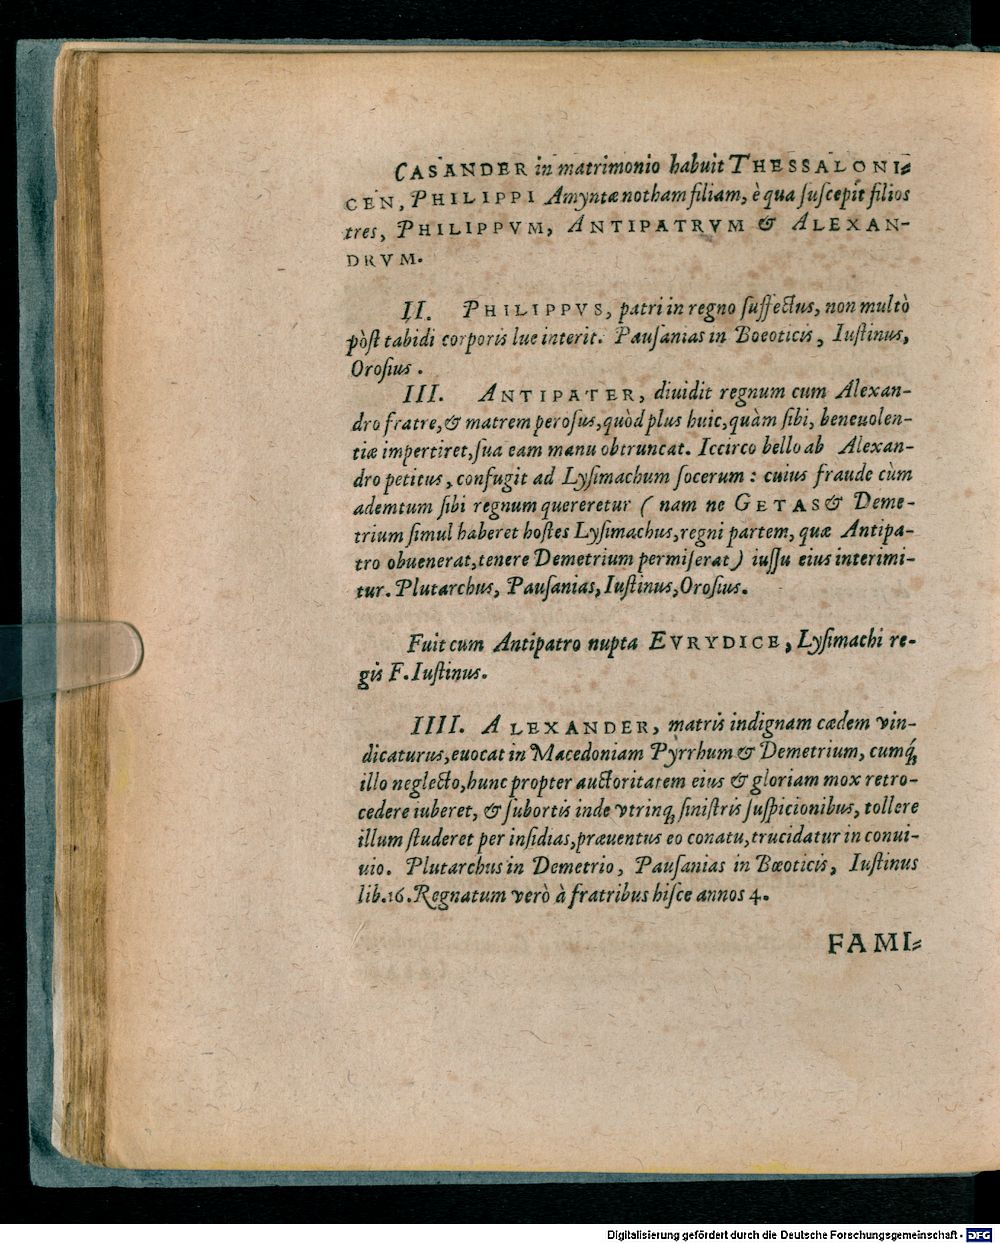 CASANDER in matrimonio habuit THESSALONI⸗
CEN, PHILIPPI Amyntæ notham filiam, è qua ſuſcepit filios
tres, PHILIPPVM, ANTIPATRVM & ALEXAN-
DRVM.
II. PHILIPPVS, patri in regno ſuffectus, non multò
pòſt tabidi corporis lue interit. Pauſanias in Boeoticis, Iuſtinus,
Oroſius.
III. ANTIPATER, diuidit regnum cum Alexan-
dro fratre, & matrem peroſus, quòd plus huic, quàm ſibi, beneuolen-
tiæ impertiret, ſua eam manu obtruncat. Iccirco bello ab Alexan-
dro petitus, confugit ad Lyſimachum ſocerum: cuius fraude cùm
ademtum ſibi regnum quereretur (nam ne GETAS & Deme-
trium ſimul haberet hoſtes Lyſimachus, regni partem, quæ Antipa-
tro obuenerat, tenere Demetrium permiſerat) iuſſu eius interimi-
tur. Plutarchus, Pauſanias, Iuſtinus, Oroſius.
Fuit cum Antipatro nupta EVRYDICE, Lyſimachi re-
gis F. Iuſtinus.
IIII. ALEXANDER, matris indignam cædem vin-
dicaturus, euocat in Macedoniam Pyrrhum & Demetrium, cumq́,
illo neglecto, hunc propter auctoritatem eius & gloriam mox retro-
cedere iuberet, & ſubortis inde vtrinq, ſiniſtris ſuſpicionibus, tollere
illum ſtuderet per inſidias, præuentus eo conatu, trucidatur in conui-
uio. Plutarchus in Demetrio, Pauſanias in Bœoticis, Iuſtinus
lib. 16. Regnatum verò à fratribus hiſce annos 4.
FAMI⸗
Digitalisierung gefördert durch die Deutsche Forschungsgemeinschaft - DFG